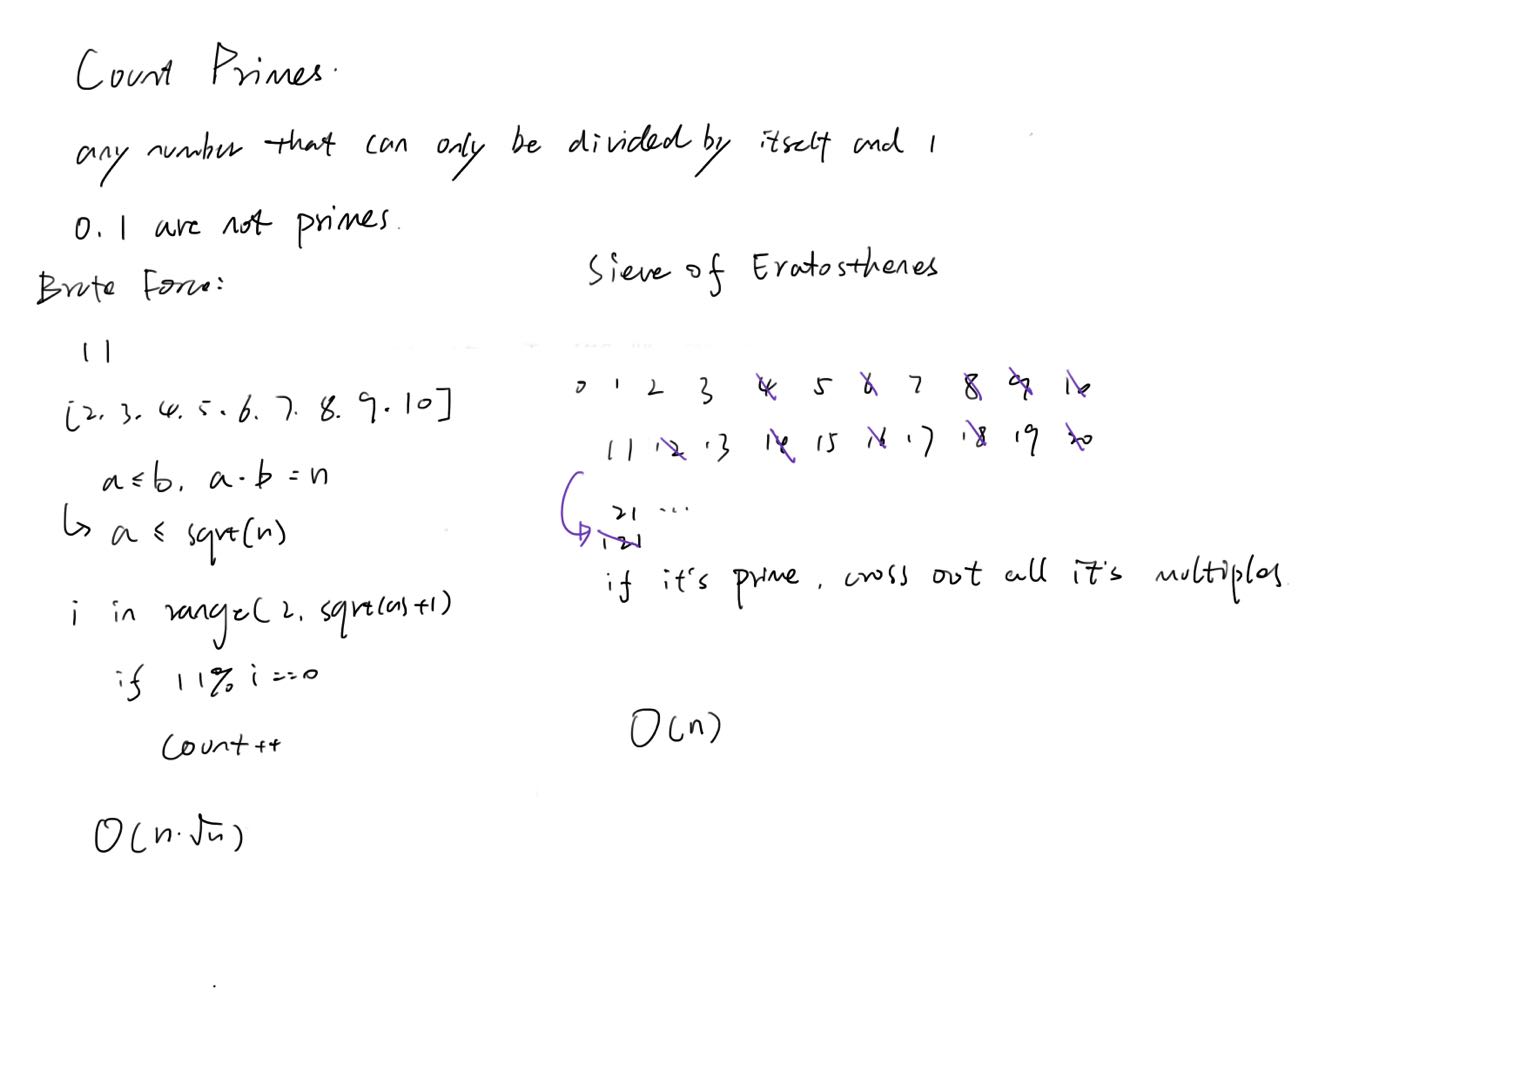 Count Primes.
any number that can only be divided by itself and 1
0. 1 are not primes.
Brute Force:
11
[2. 3. 4. 5. 6. 7. 8. 9. 10]
a ≤ b. a · b = n
↳ a ≤ sqrt(n)
i in range(2, sqrt(n)+1)
if 11% i ==0
count++
O(n·√n)
Sieve of Eratosthenes
0 1 2 3 4 5 6 7 8 9 10
11 12 13 14 15 16 17 18 19 20
21 ...
121
if it's prime, cross out all it's multiples
O(n)